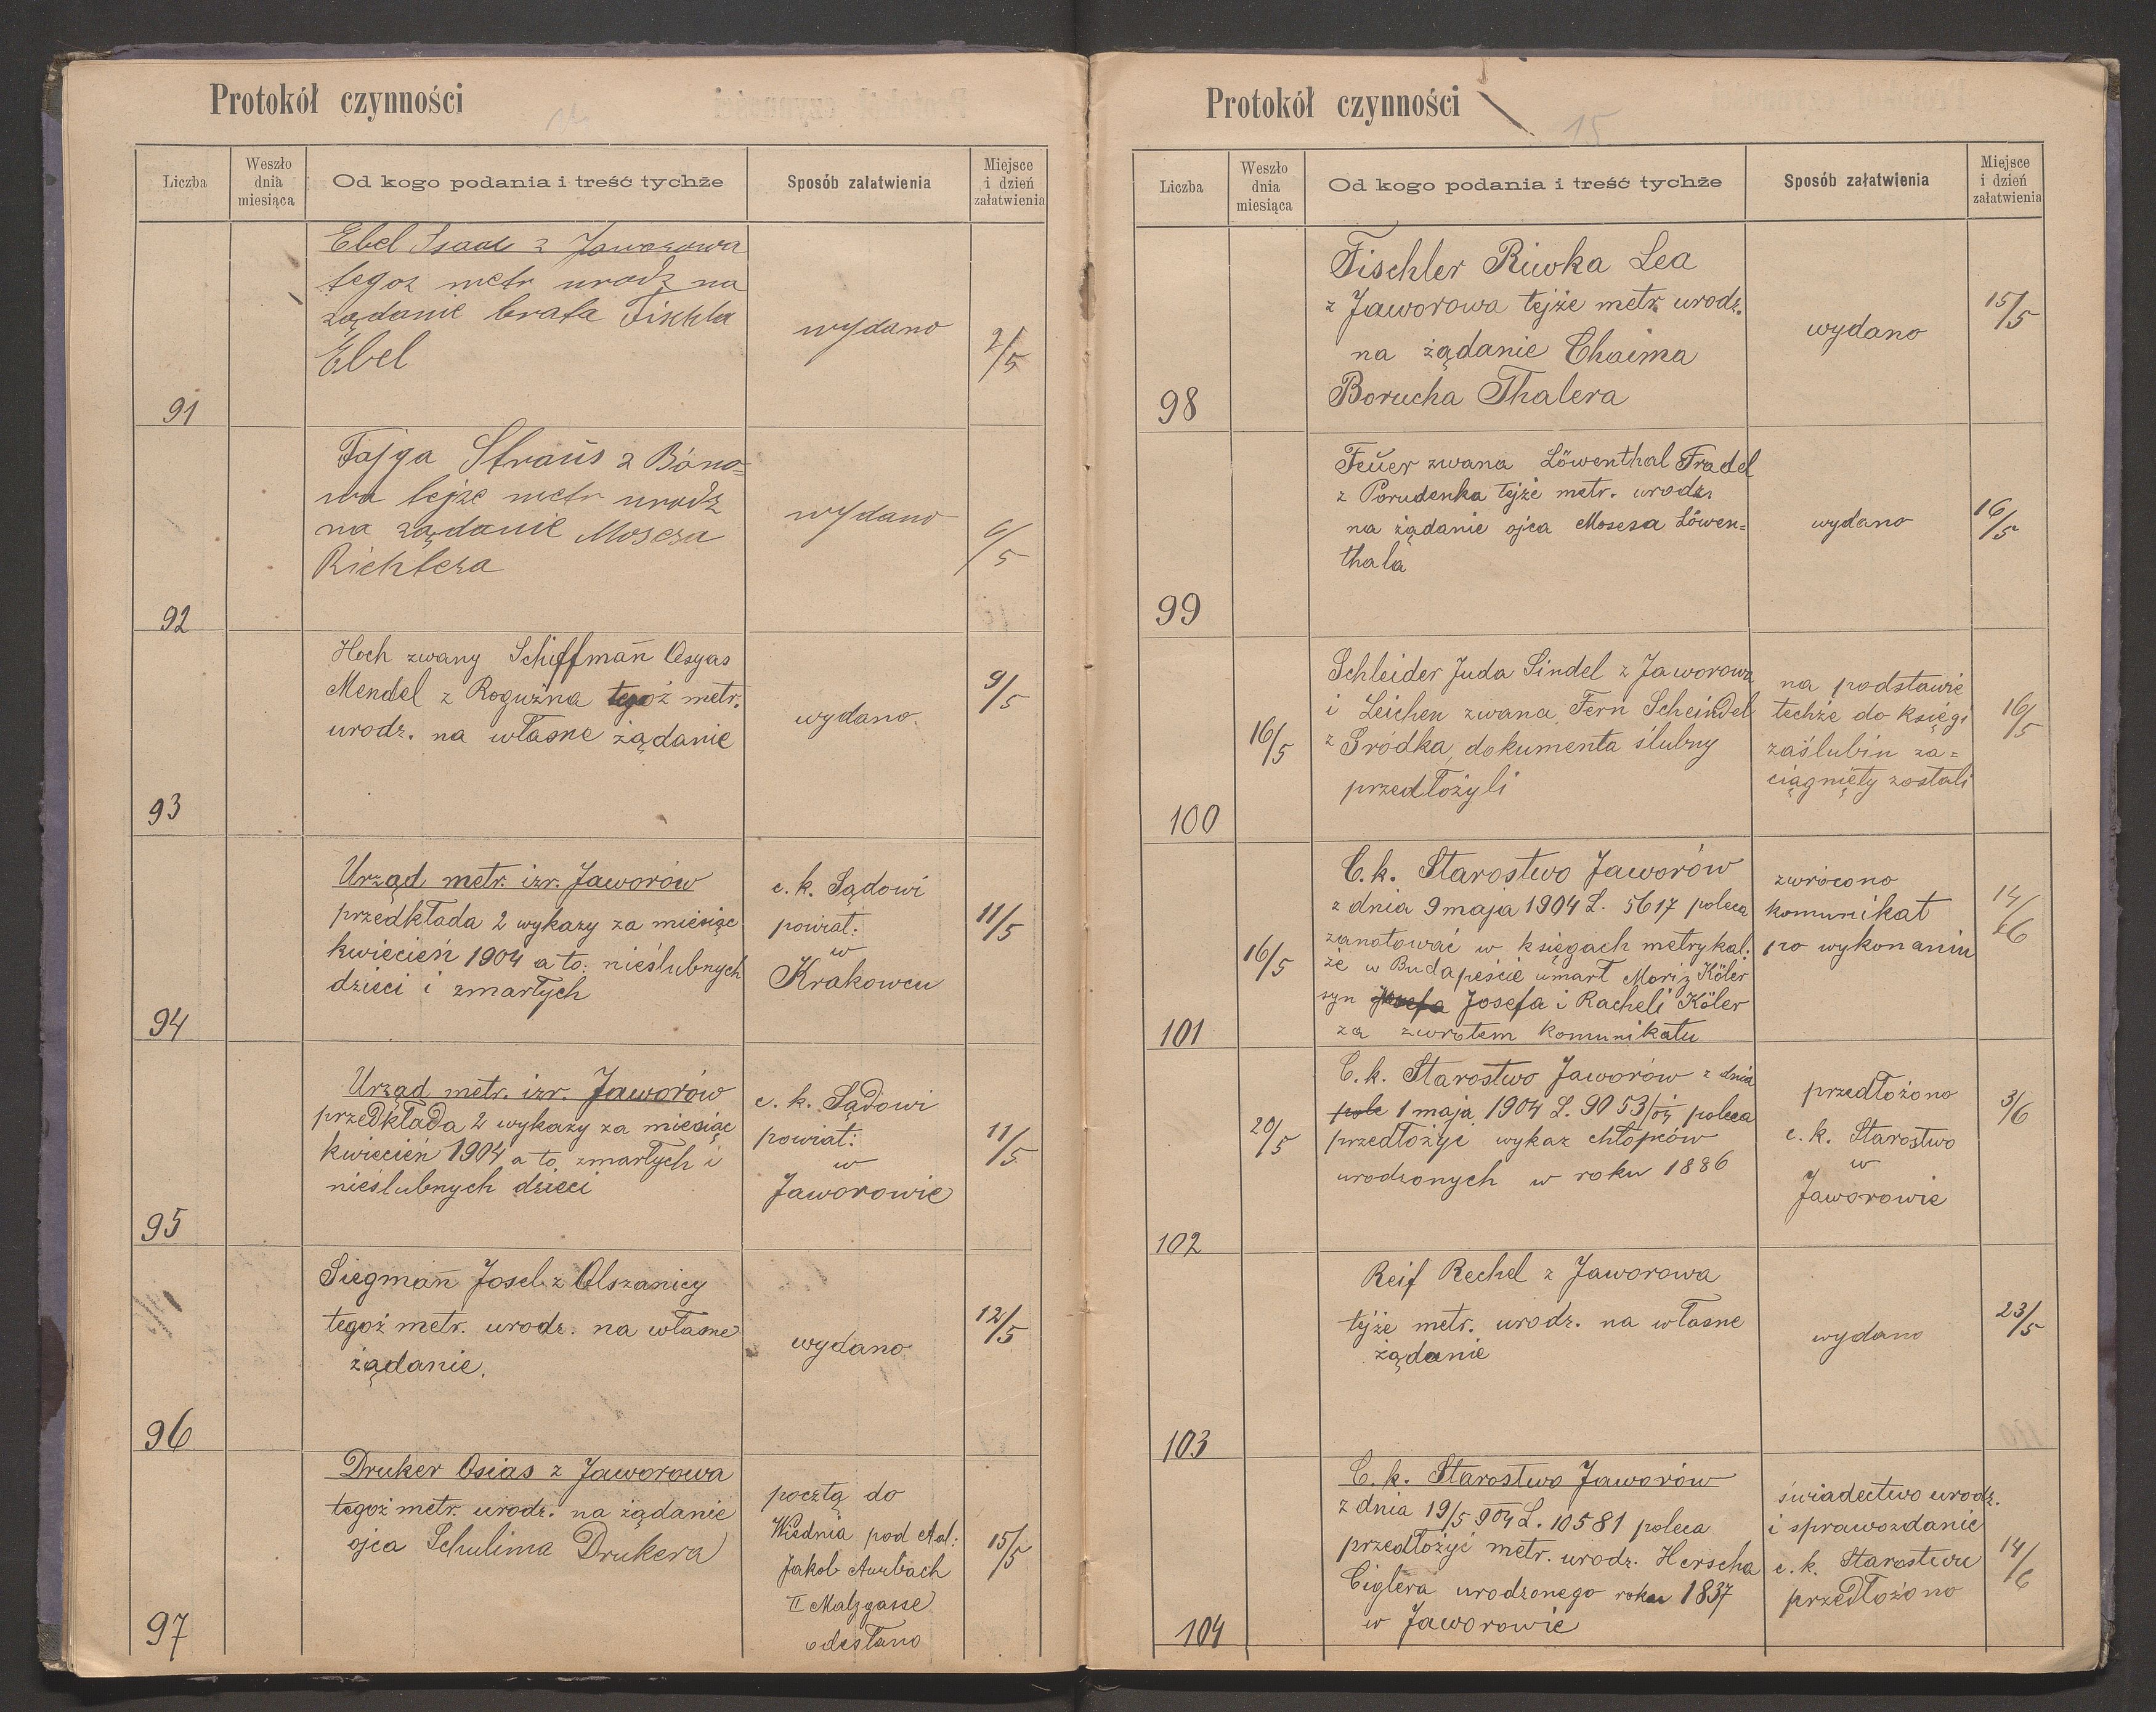 Protokół czynności
Liczba
Weszło
dnia
miesiąca
Od kogo podania i treść tychże
Sposób załatwienia
Miejsce
i dzień
załatwienia
91
Ebel Isaak z Jaworowa
tegoz metr urodz na
ządanie brata Fischla
Ebel
wydano
2/5
92
Fajga Straŭs z Bóno=
wa tejze metr urodz
na ządanie Mosesa
Richtera
wydano
6/5
93
Hoch zwany Schiffman̄ Osyas
Mendel z Roguźna tegoż metr.
urodz. na własne żądanie
wydano.
9/5
94
Urząd metr. izr. Jaworów
przedkłada 2 wykazy za miesiąc
kwiecień 1904 a to: nieślubnych
dzieci i zmarłych
c. k. Sądowi
powiat:
w
Krakowcu
11/5
95
Urząd metr. izr. Jaworów
przedkłada 2 wykazy za miesiąc
kwiecień 1904 a to zmarłych i
nieślubnych dzieci
c. k. Sądowi
powiat:
w
Jaworowie
11/5
96
Siegman̄ Josel z Olszanicy
tegoż metr. urodz. na własne
żądanie.
wydano
12/5
97
Druker Osias z Jaworowa
tegoż metr. urodz. na żądanie
ojca Schulima Drukera
pocztą do
Wiednia pod Ad:
Jakob Aurbach
II Malzgasse
odesłano
15/5
Protokół czynności
15
Liczba
Weszło
dnia
miesiąca
Od kogo podania i treść tychże
Sposób załatwienia
Miejsce
i dzień
załatwienia
98
Fischler Riwka Lea
z Jaworowa tejże metr. urodz.
na żądanie Chaima
Borucha Thalera
wydano
15/5
99
Feŭer zwana Löwenthal Fradel
z Porudenka tejże metr. urodz.
na żądanie ojca Mosesa Löwen=
thala
wydano
16/5
100
16/5
Schleider Juda Sindel z Jaworowa
i Leichen zwana Fern Scheindel
z Sródka dokumenta ślubny
przedłożyli
na podstawie
techże do księgi
zaślubin za=
ciągnięty zostali
16/5
101
16/5
C. k. Starostwo Jaworów
z dnia 9 maja 1904 L. 5617 poleca
zanotować w księgach metrykal:
że w Budapeście umarł Moriz Köler
syn Josefa i Racheli Köler
za zwrotem komunikatu
zwrócono
komunikat
po wykonaniu
14/6
102
20/5
C. k. Starostwo Jaworów z dnia
pole 1 maja 1904 L. 9053/04 poleca
przedłożyć wykaz chłopców
urodzonych w roku 1886
przedłożono
c. k. Starostwo
w
Jaworowie
3/6
103
Reif Rechel z Jaworowa
tejże metr. urodz. na własne
żądanie
wydano
23/5
104
C. k. Starostwo Jaworów
z dnia 19/5 904 L. 10581 poleca
przedłożyć metr. urodz. Herscha
Ciglera urodzonego roku 1837
w Jaworowie
świadectwo urodz.
i sprawozdanie
c. k. Starostwu
przedłożono
14/6